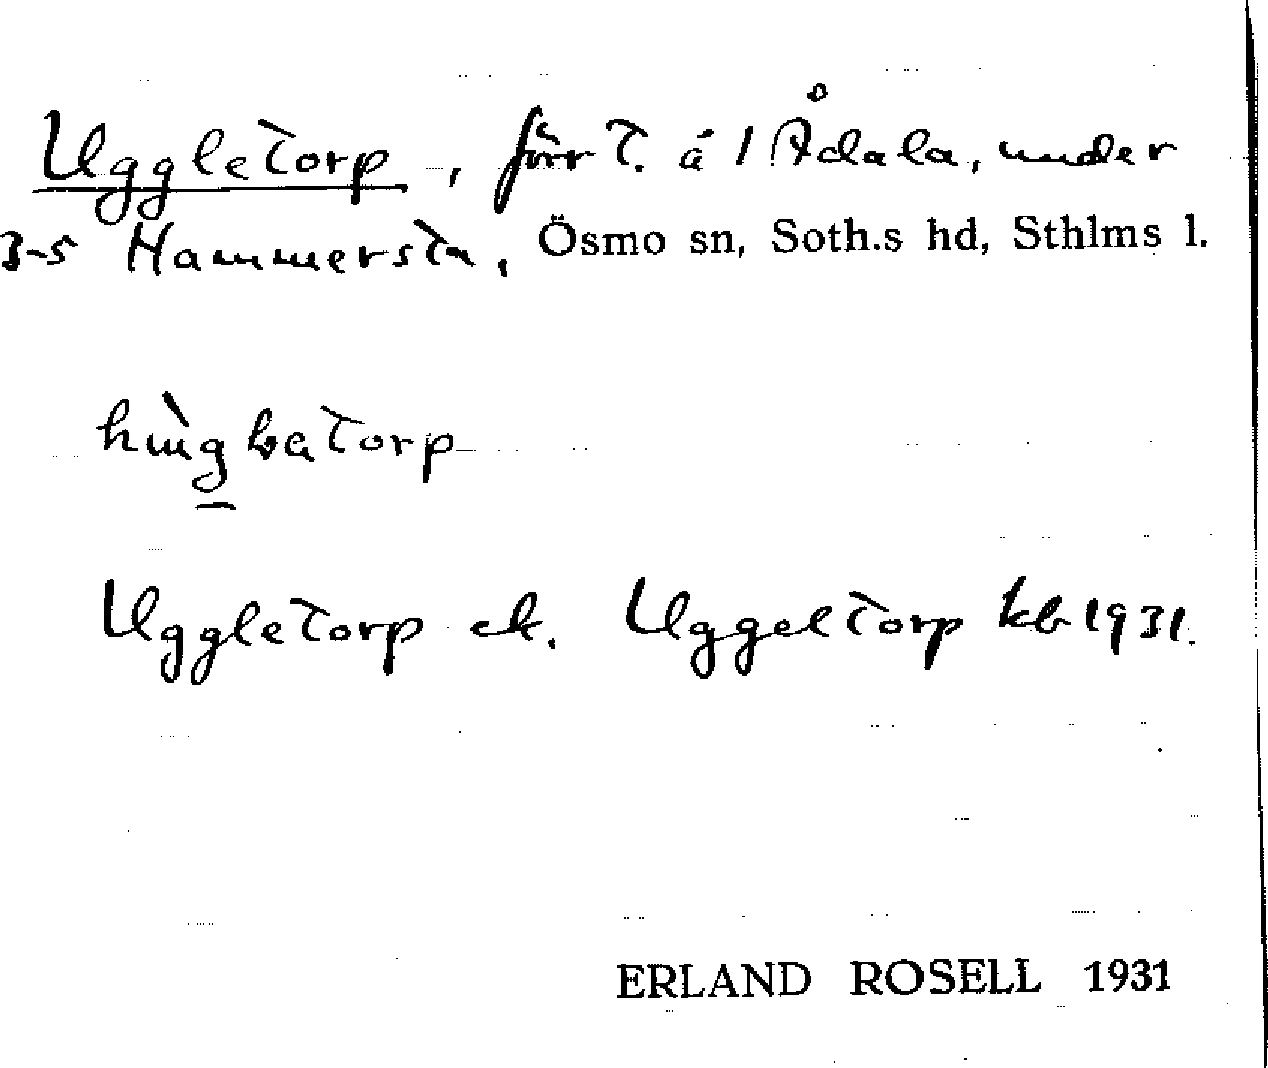 Uggletorp, förr T. å 1 Ådala, under
3-5 Hammersta, Ösmo sn, Soth.s hd, Sthlms l.
Uggletorp ek. Uggeltorp kb 1931.
ERLAND ROSELL 1931